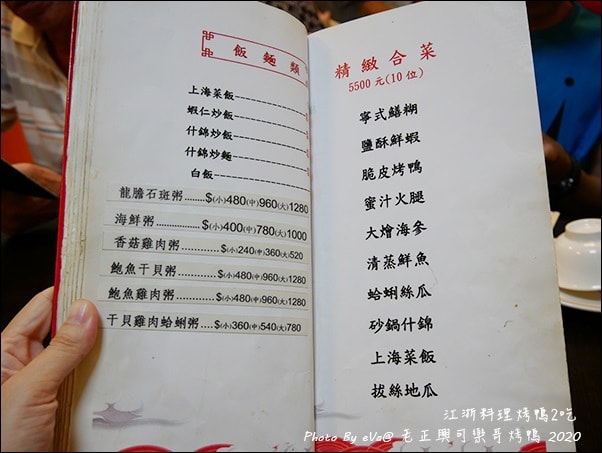 飯麵類
上海菜飯
蝦仁炒飯
什錦炒飯
什錦炒麵
白飯
龍膽石斑粥........$(小)480(中)960(大)1280
海鮮粥........$(小)400(中)780(大)1000
香菇雞肉粥............$(小)240(中)360(大)520
鮑魚干貝粥......$(小)480(中)960(大)1280
鮑魚雞肉粥......$(小)480(中)960(大)1280
干貝雞肉蛤蜊粥....$(小)360(中)540(大)780
精緻合菜
5500元(10位)
寧式鱔糊
鹽酥鮮蝦
脆皮烤鴨
蜜汁火腿
大燴海參
清蒸鮮魚
蛤蜊絲瓜
砂鍋什錦
上海菜飯
拔絲地瓜
江浙料理烤鴨2吃
Photo By eVa@ 老正興可樂哥烤鴨 2020